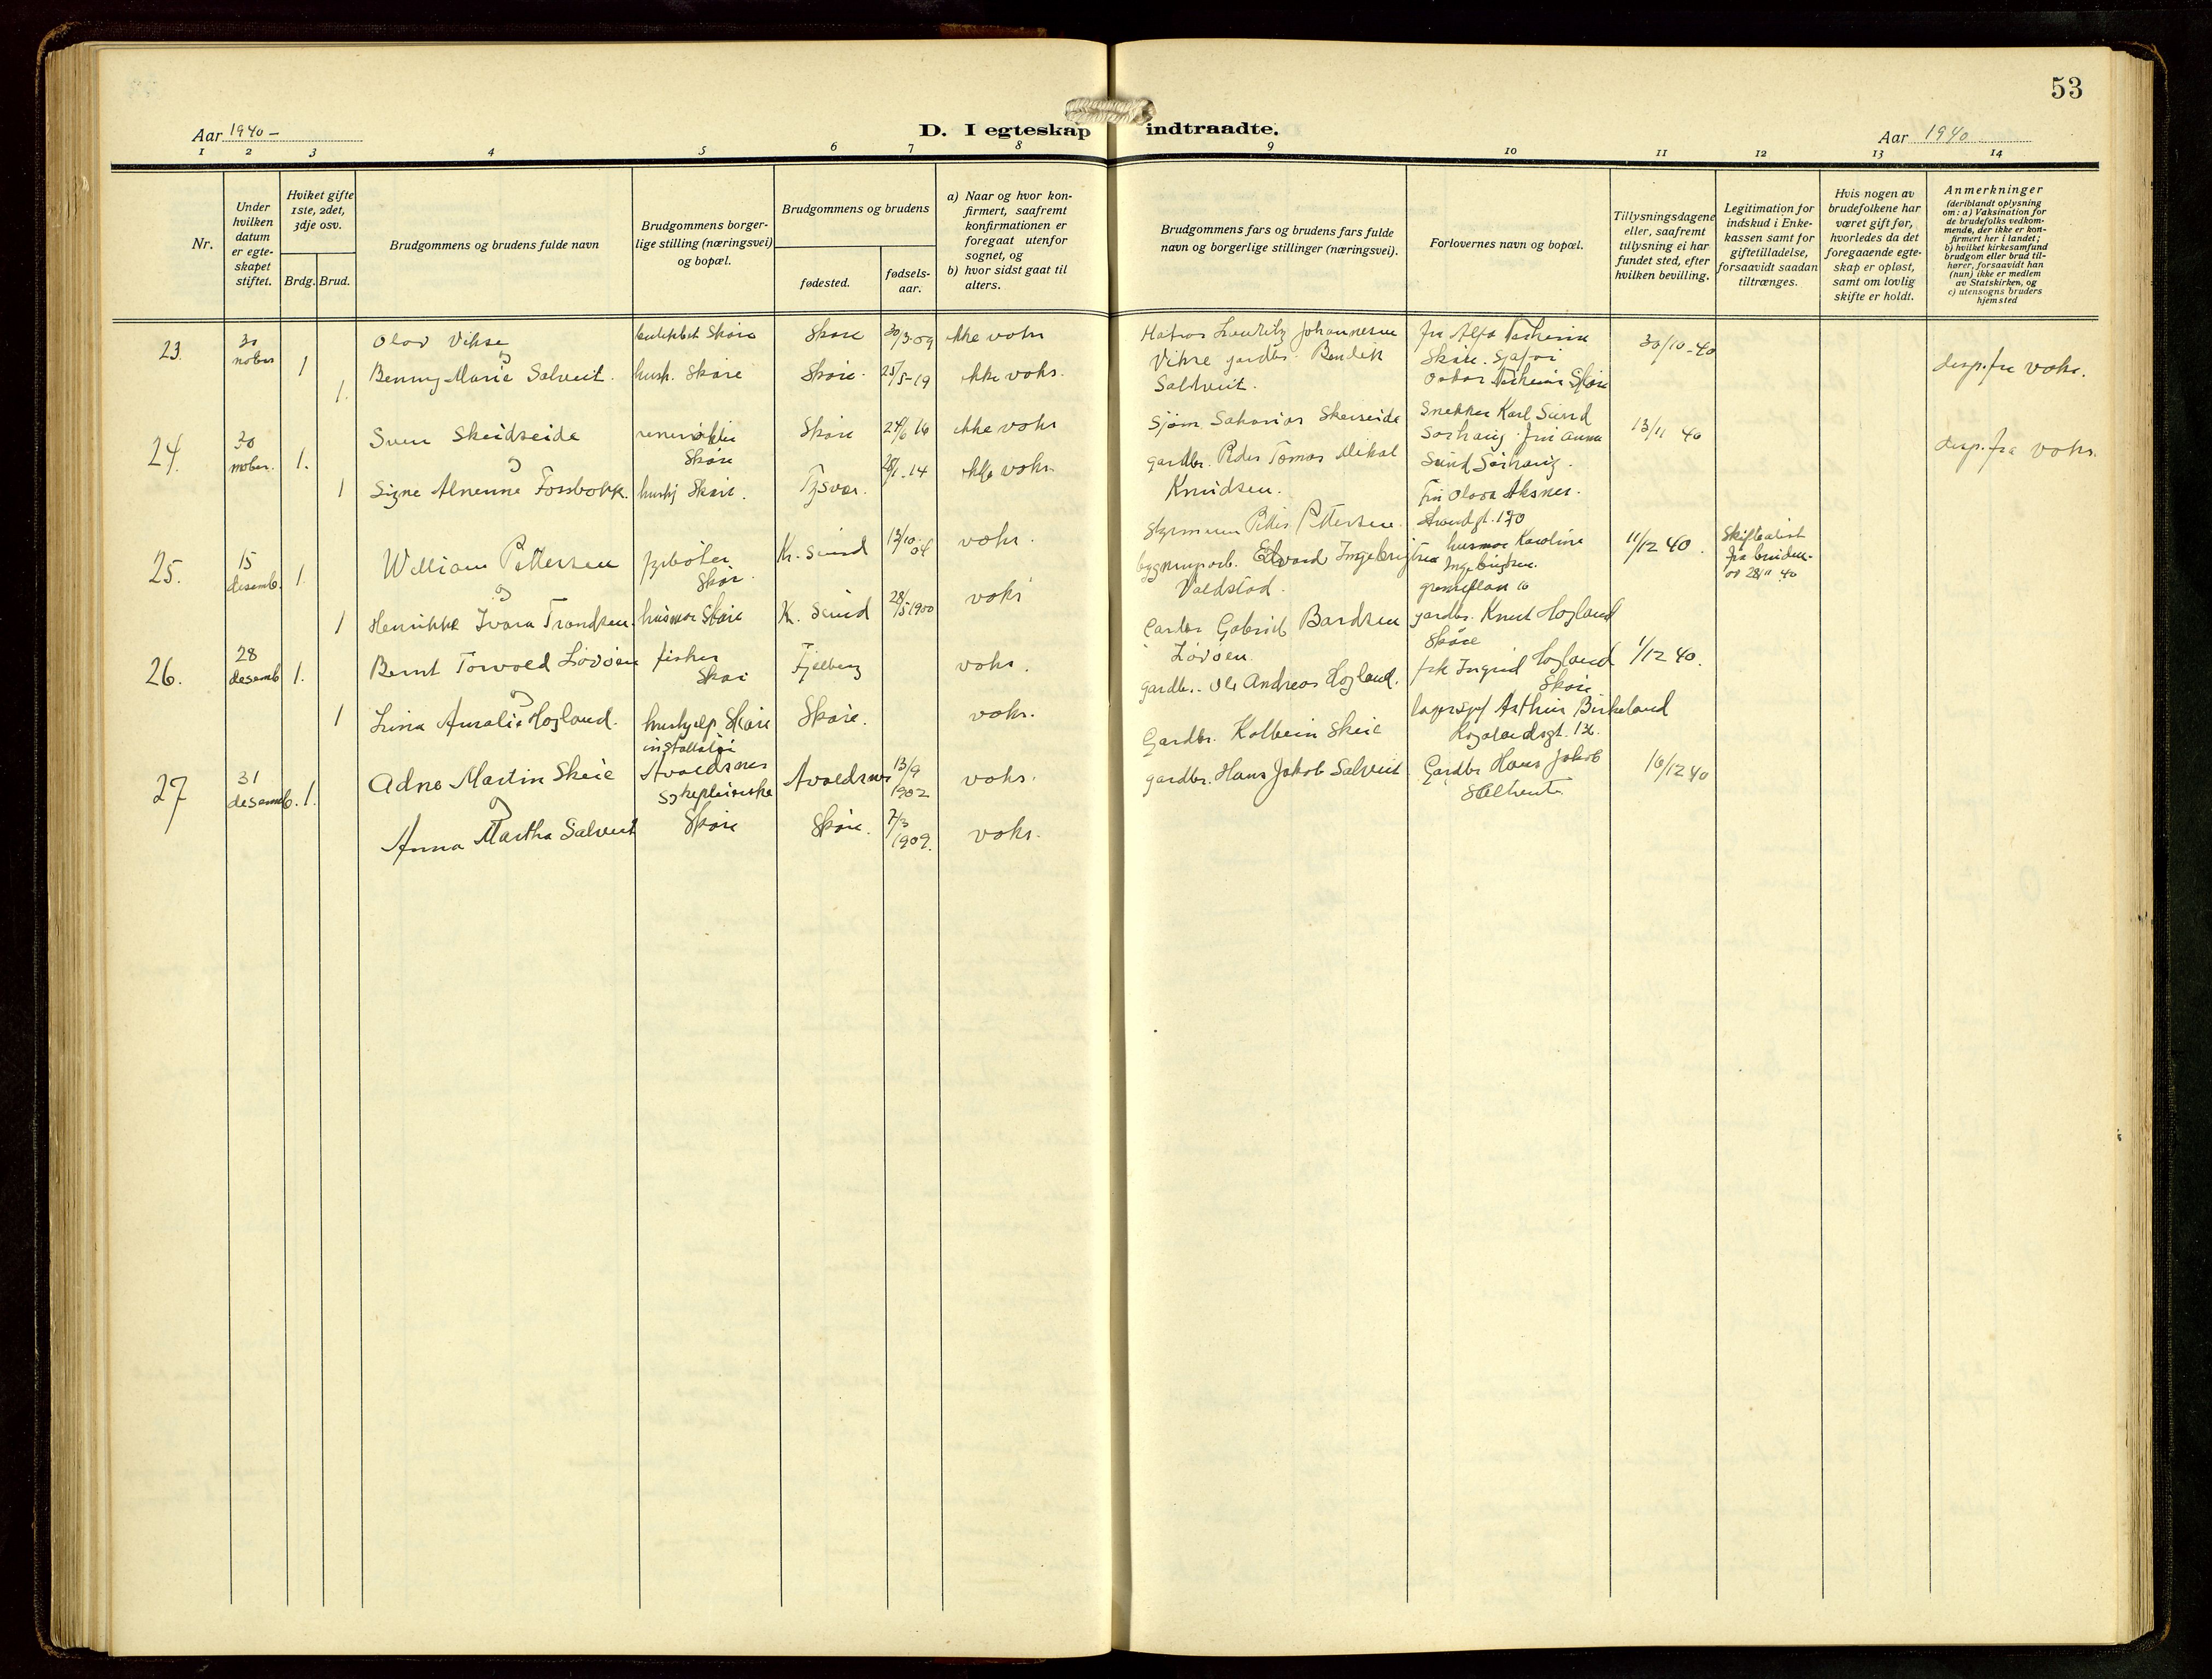 53
Aar 1940 –
D. I egteskap indtraadte.
Aar 1940
1 2 3 4 5 6 7 8 9 10 11 12 13 14
Nr.
Under hvilken datum er egte-skapet stiftet.
Hviket gifte 1ste, 2det, 3dje osv.
Brdg. Brud.
Brudgommens og brudens fulde navn
Brudgommens borger-lige stilling (næringsvei) og bopæl.
Brudgommens og brudens
fødested.
fødsels-aar.
a) Naar og hvor kon-firmert, saafremt konfirmationen er foregaat utenfor sognet, og
b) hvor sidst gaat til alters.
Brudgommens fars og brudens fars fulde navn og borgerlige stillinger (næringsvei).
Forlovernes navn og bopæl.
Tillysningsdagene eller, saafremt tillysning ei har fundet sted, efter hvilken bevilling.
Legitimation for indskud i Enke-kassen samt for giftetilladelse, forsaavidt saadan tiltrænges.
Hvis nogen av brudefolkene har været gift før, hvorledes da det foregaaende egte-skap er opløst, samt om lovlig skifte er holdt.
Anmerkninger
(deriblandt oplysning om: a) Vaksination for de brudefolks vedkom-mende, der ikke er kon-firmert her i landet; b) hvilket kirkesamfund brudgom eller brud til-hører, forsaavidt han (hun) ikke er medlem av Statskirken, og c) utensogns bruders hjemsted
23. 30 nobr 1 Olav Vikse Skåre Skåre 30/3-09 ikke vohr
og
1. Benny Marie Salveit. hush. Skåre Skåre. 25/5-19 ikke vohr.
Lauritz Johannesen
Vikse gardbr. Bendik
Saltveit.
fru
Skåre. Sjåfør
Oskar Skåre
30/10-40
desp. fra vohr.
24. 30 nober. 1. Sven Skeidseide Skåre Skåre 24/6 16 ikke vohr
og
1 Signe Fossbakk. hushj Skåre. Tysvær. 28/1-14 ikke vohr.
Sjøm. Sakarias
gardbr. Peder Tomas Mikal
Knudsen.
Snekker Karl Sund
Sørhaug. fru Anna
Sund Sørhaug.
13/11 40
desp. fra vohr.
25. 15 desemb. 1. William Pettersen fyrbøter Skåre Kr. sund 13/10-04 vohr.
og
1 Henrikke Ivara Trondsen. husmor Skåre Kr. sund 28/5 1900 vohr
Styrmann Petter Pettersen.
bygningsarb. Edvard Ingebrigtsen
Valdstad.
Fru Olava Aksnes.
Strandgt. 170
husmor Karoline
Ingebrigtsen.
11/12 40.
Skifteattest
fra bruden
28/11 40
26. 28 desemb 1. Bernt Torvald Løvøen fisker Skåre Fjelberg vohr.
og
1 Lina Amalie Hogland. hushjelp Skåre Skåre. vohr.
Gardbr Gabriel Bårdsen
Løvøen
gardbr. Ole Andreas Hogland.
gardbr. Knut Hogland
Skåre
frk Ingrid Hogland
Skåre
1/12 40.
27 31 desemb. 1. Adne Martin Skeie Avaldsnes Avaldsnes 13/9 1902 vohr.
og
Anna Martha Salveit Sykepleierske Skåre Skåre. 7/3 1909. vohr.
Gardbr. Kolbein Skeie
gardbr. Hans Jakob Salveit.
lagersjef Arthur Birkeland
Rogalandsgt.
Gardbr Hans Jakob
16/12 40